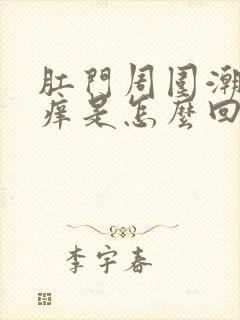 肛門周圍潮
痒是怎麼回
李宇春